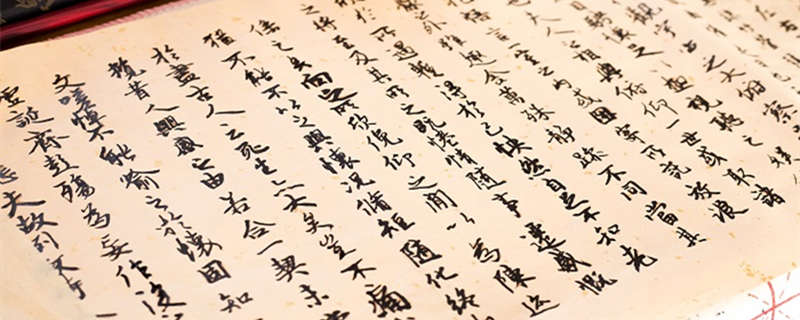 觀宇宙之大俯察
騁懷足以極視聽之娛
夫人之相與俯仰一世或取諸
言一室之內或因寄所託放浪
之外雖趣舍萬殊靜躁不同當其
於所遇暫得於己怏然自足不知老
之將至及其所之既惓情隨事遷感慨
係之矣向之所欣俛仰之間以為陳迹
猶不能不以之興懷況脩短隨化終
於盡古人云死生亦大矣豈不痛
攬昔人興感之由若合一契未
文嗟悼不能喻之於懷固知
虛誕齊彭殤為妄作後
悲夫故列